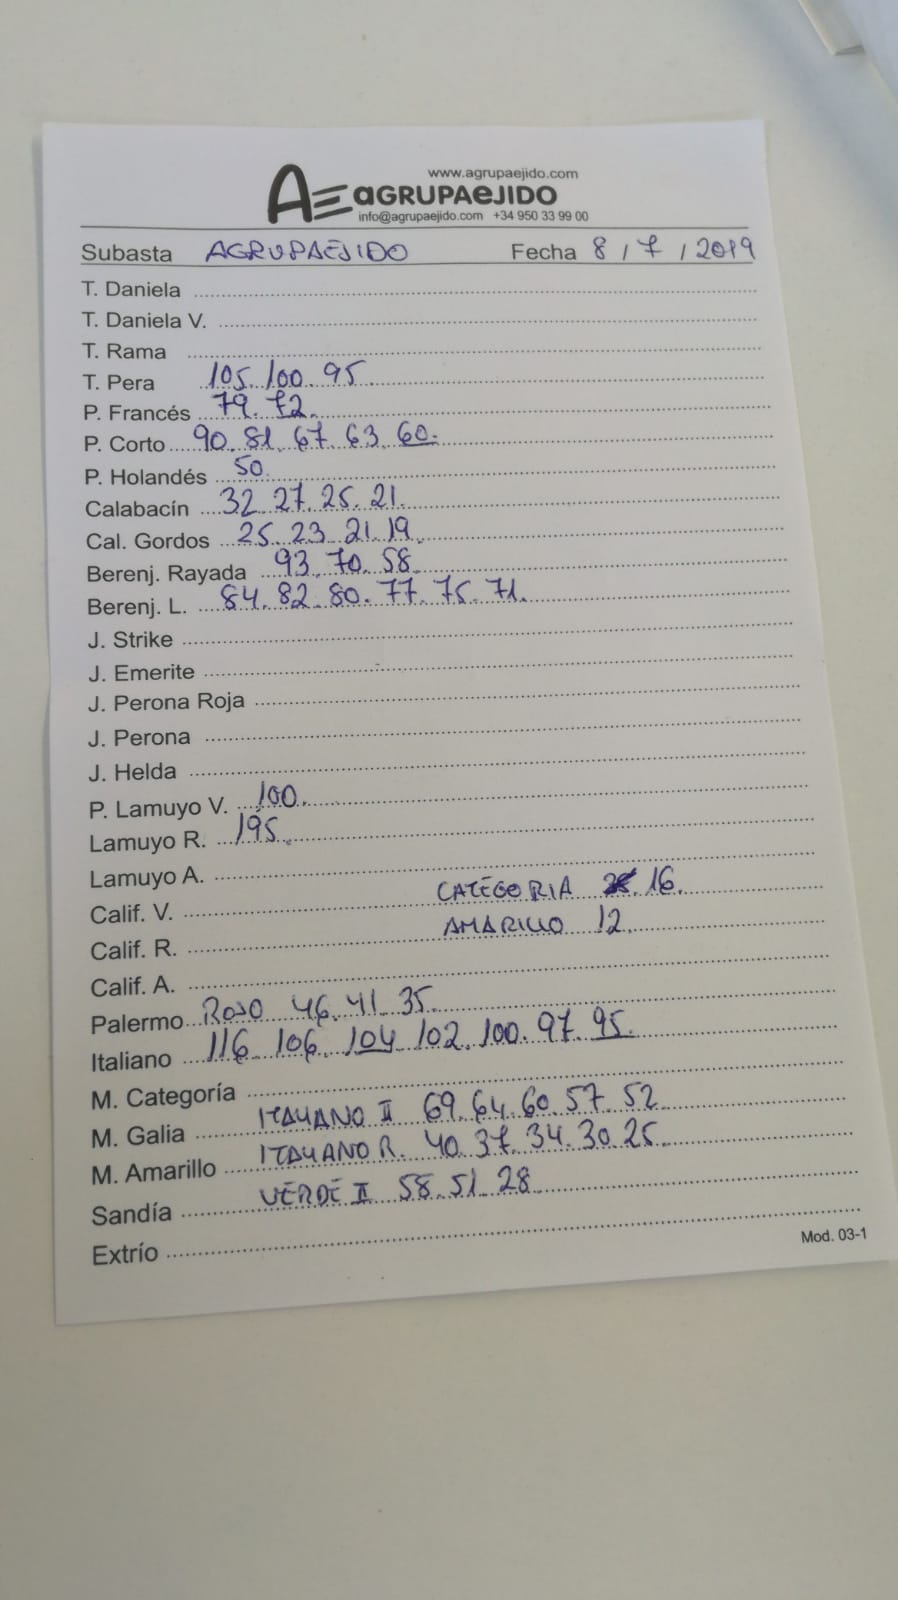 www.agrupaejido.com
AE aGRUPAeJIDO
info@agrupaejido.com +34 950 33 99 00
Subasta AGRUPAEJIDO Fecha 8 / 7 / 2019
T. Daniela
T. Daniela V.
T. Rama
T. Pera 105. 100. 95
P. Francés 79. 72.
P. Corto 90. 81. 67. 63. 60.
P. Holandés 50
Calabacín 32. 27. 25. 21.
Cal. Gordos 25. 23. 21. 19.
Berenj. Rayada 93. 70. 58
Berenj. L. 84. 82. 80. 77. 75. 71.
J. Strike
J. Emerite
J. Perona Roja
J. Perona
J. Helda
P. Lamuyo V. 100.
Lamuyo R. 195.
Lamuyo A.
Calif. V. CATEGORIA 16.
Calif. R. AMARILLO 12.
Calif. A.
Palermo ROJO 46. 41. 35.
Italiano 116. 106. 104 102. 100. 97. 95.
M. Categoría
M. Galia ITALIANO II 69. 64. 60. 57. 52
M. Amarillo ITALIANO R. 40. 37. 34. 30. 25
Sandía VERDE II 58. 51. 28
Extrío
Mod. 03-1